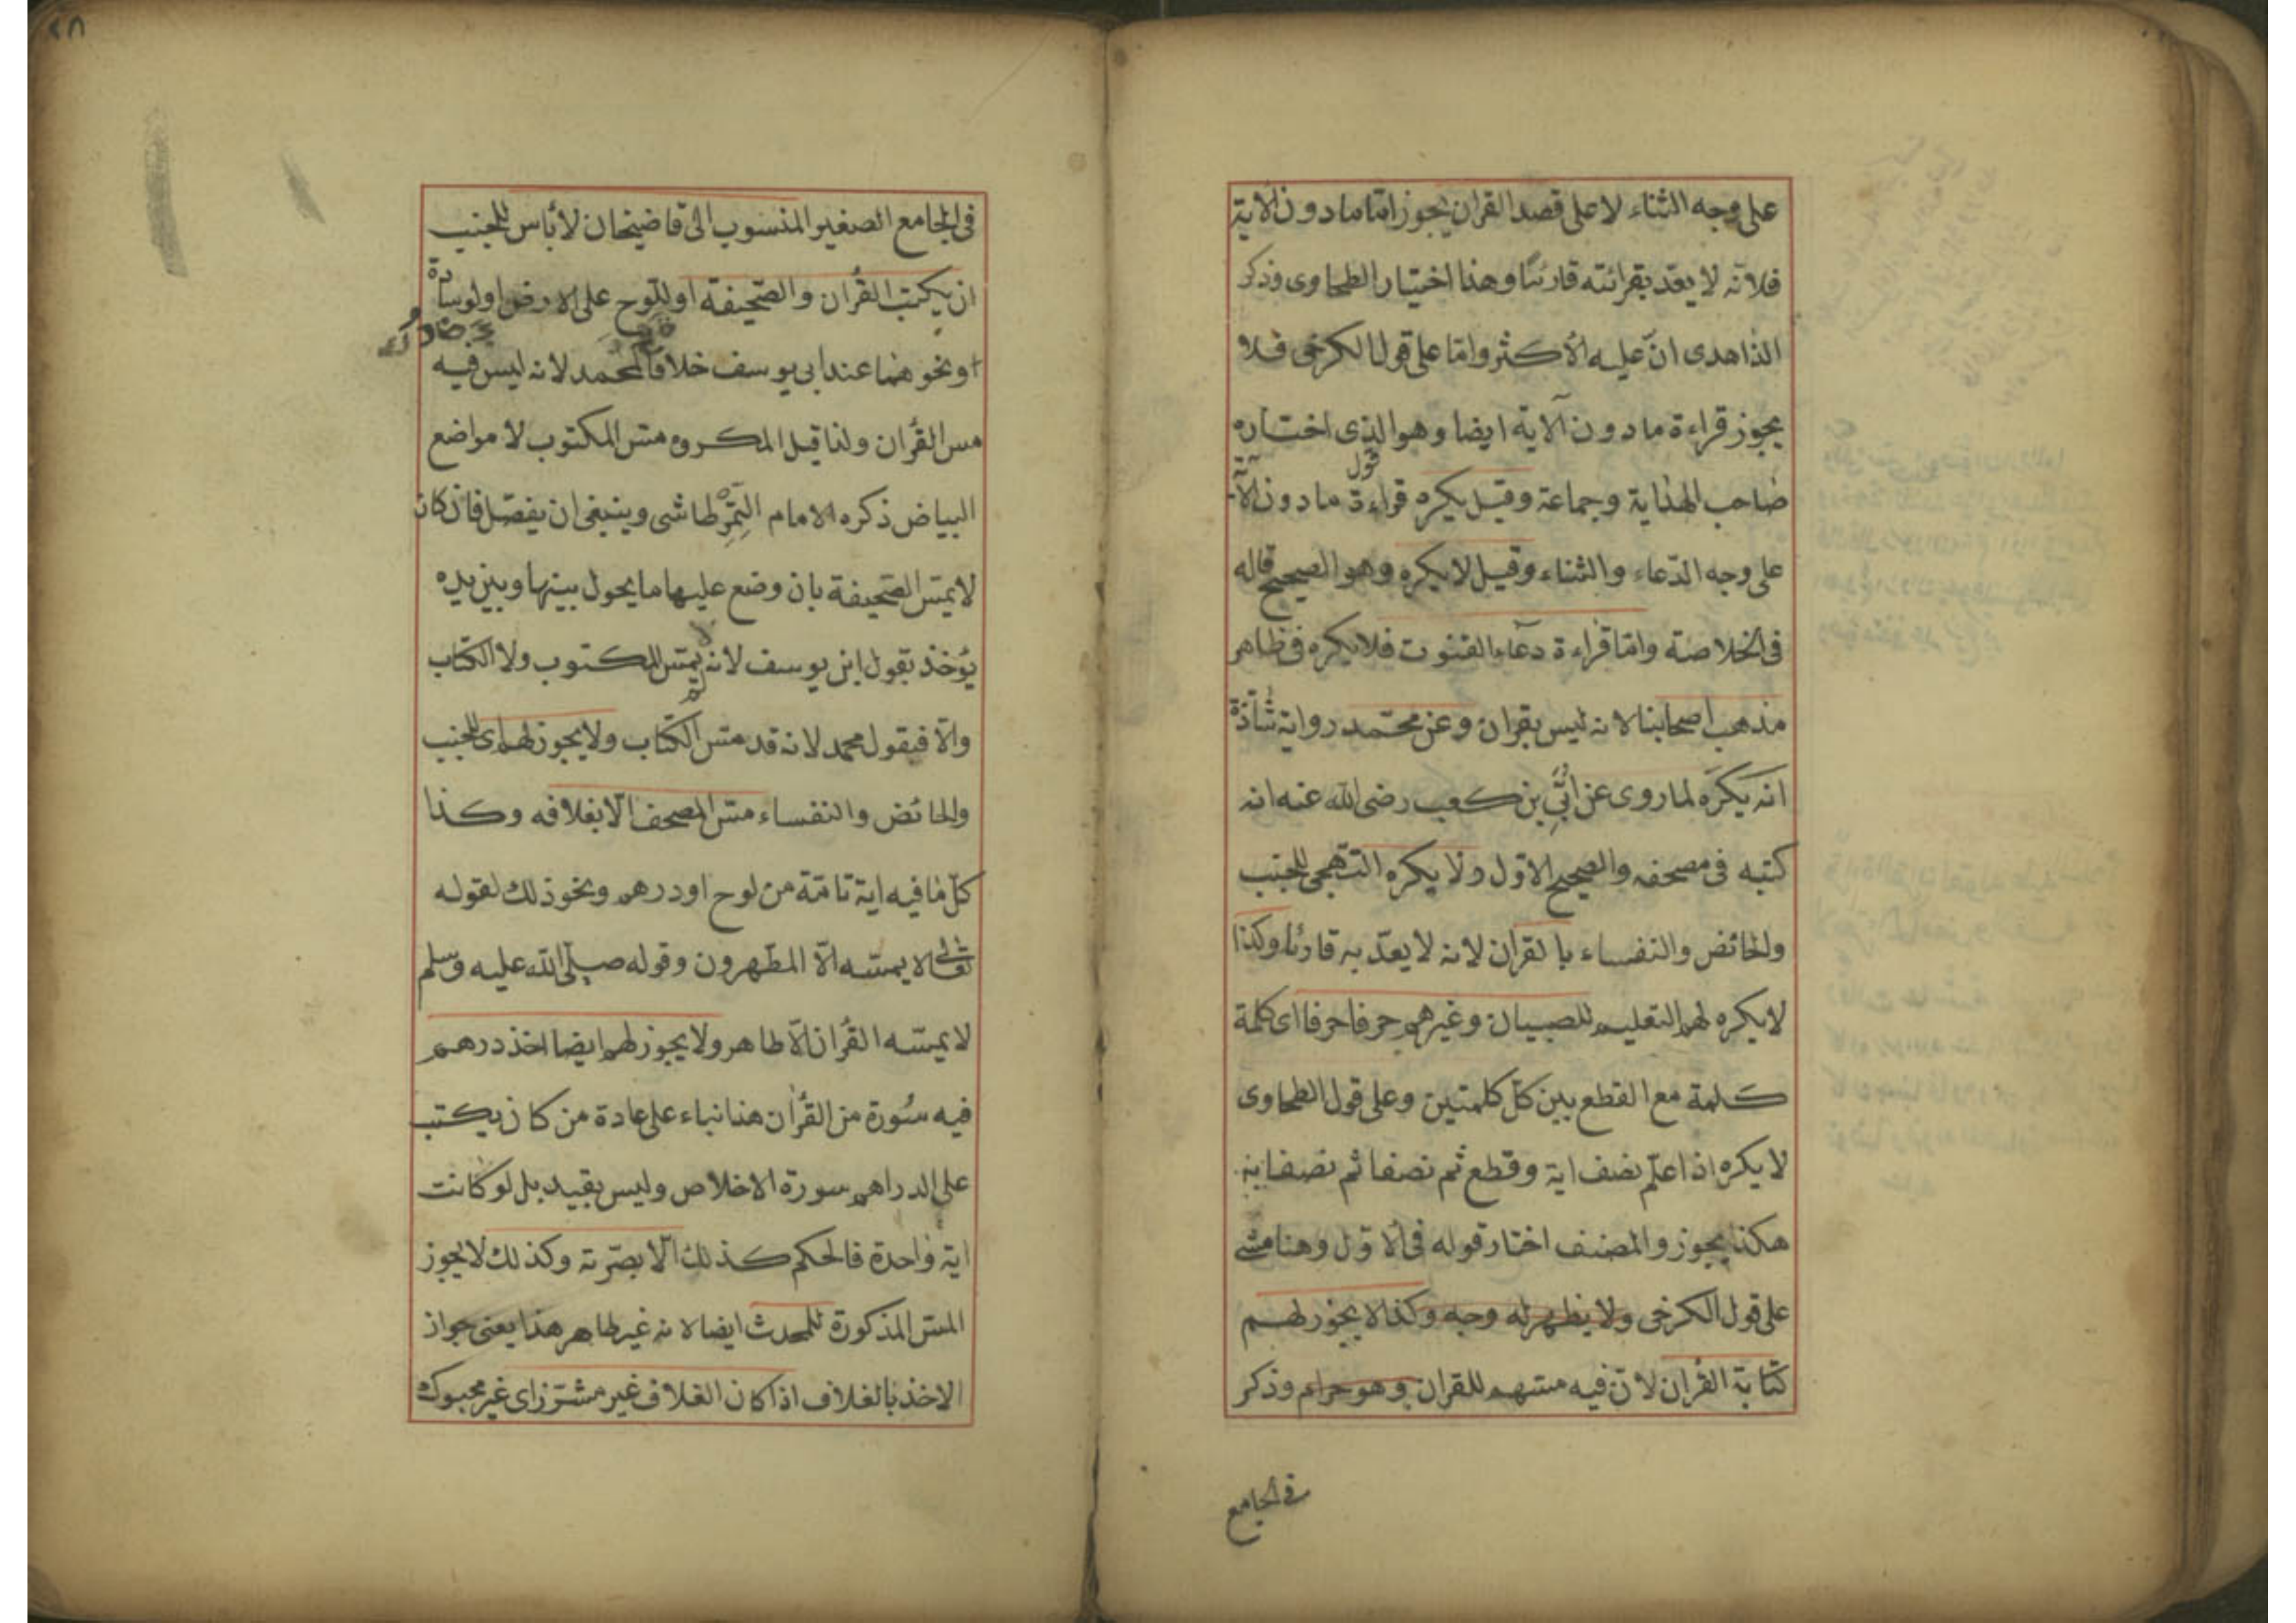 على وجه الثناء لا على قصد القرآن يجوز اما ما دون الآية
فلانه لا يعد بقرائته قارئا وهذا اختيار الطحاوى وذكر
الذاهدى ان عليه الأكثر واما على قول الكرخى فلا
يجوز قراءة ما دون الآية ايضا وهو الذى اختاره
صاحب الهداية وجماعة وقيل يكره قراءة ما دون الآية
على وجه الدعاء والثناء وقيل لا يكره وهو الصحيح قاله
فى الخلاصة واما قراءة دعاء القنوت فلا يكره فى ظاهر
مذهب اصحابنا لانه ليس بقران وعن محمد رواية شاذة
انه يكره لما روى عن ابى بن كعب رضى الله عنه انه
كتبه فى مصحفه والصحيح الاول ولا يكره التهجى للجنب
والحائض والنفساء بالقرآن لانه لا يعد به قارئا وكذا
لا يكره لهم التعليم للصبيان وغيرهم حرفا حرفا اى كلمة
كلمة مع القطع بين كل كلمتين وعلى قول الطحاوى
لا يكره اذا علم نصف اية وقطع ثم نصفا ثم نصفا
هكذا يجوز والمصنف اختار قوله فى الاول وهنا مشى
على قول الكرخى ولا يظهر له وجه وكذا لا يجوز لهم
كتابة القرآن لان فيه مسهم للقران وهو حرام وذكر
فى الجامع
٢٨
فى الجامع الصغير المنسوب الى قاضيخان لا بأس للجنب
ان يكتب القرآن والصحيفة او اللوح على الارض او لوسادة
او نحوهما عند ابى يوسف خلافا لمحمد لانه ليس فيه
مس القرآن ولذا قيل المكروه مس المكتوب لا مواضع
البياض ذكره الامام التمرطاشى وينبغى ان يفصل فان كان
لا يمس الصحيفة بان وضع عليها ما يحول بينها وبين يده
يؤخذ بقول ابى يوسف لانه لم يمس المكتوب ولا الكتاب
والا فبقول محمد لانه قد مس الكتاب ولا يجوز لهم اى للجنب
والحائض والنفساء مس المصحف الا بغلافه وكذا
كل ما فيه اية تامة من لوح او درهم ونحو ذلك لقوله
تعالى لا يمسه الا المطهرون وقوله صلى الله عليه وسلم
لا يمسه القرآن الا طاهر ولا يجوز لهم ايضا اخذ درهم
فيه سورة من القرآن هذا بناء على عادة من كان يكتب
على الدراهم سورة الاخلاص وليس بقيد بل لو كانت
اية واحدة فالحكم كذلك الا بصرته وكذلك لا يجوز
المس المذكورة للمحدث ايضا لانه غير طاهر هذا يعنى جواز
الاخذ بالغلاف اذا كان الغلاف غير مشرز اى غير محبوك